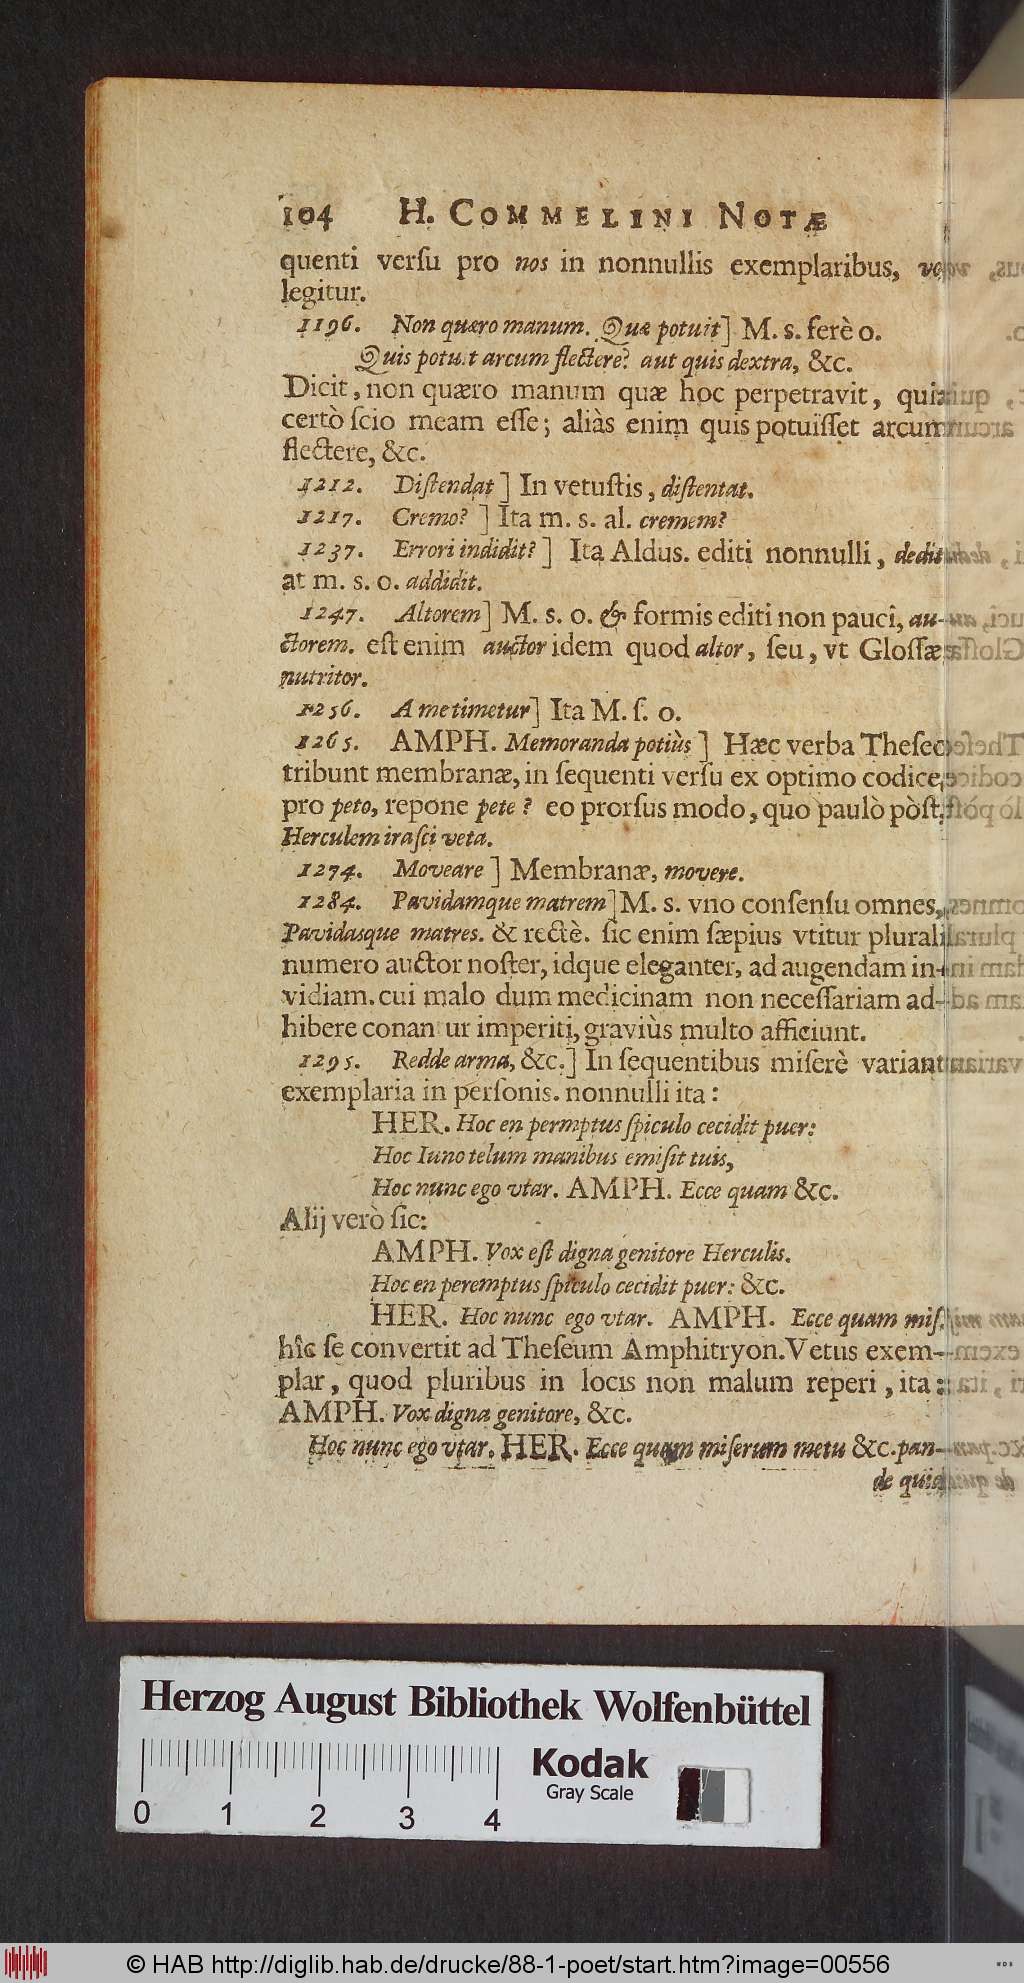 104 H. COMMELINI NOTÆ
quenti verſu pro nos in nonnullis exemplaribus, vos,
legitur.
1196. Non quæro manum. Quæ potuit] M. s. ferè o.
Quis potuit arcum flectere? aut quis dextra, &c.
Dicit, non quæro manum quæ hoc perpetravit, quia
certò ſcio meam eſſe; aliàs enim quis potuiſſet arcum
flectere, &c.
1212. Diſtendat] In vetuſtis, diſtentat.
1217. Cremo?] Ita m. s. al. cremem?
1237. Errori indidit?] Ita Aldus. editi nonnulli, dedit
at m. s. o. addidit.
1247. Altorem] M. s. o. & formis editi non pauci, au-
ctorem. eſt enim auctor idem quod altor, ſeu, vt Gloſſæ
nutritor.
1256. A me timetur] Ita M. ſ. o.
1265. AMPH. Memoranda potiùs] Hæc verba Theſeo
tribunt membranæ, in ſequenti verſu ex optimo codice,
pro peto, repone pete? eo prorſus modo, quo paulò pòſt.
Herculem iraſci veta.
1274. Moveare] Membranæ, movere.
1284. Pavidamque matrem] M. s. vno conſenſu omnes,
Pavidasque matres. & rectè. ſic enim ſæpius vtitur plurali
numero auctor noſter, idque eleganter, ad augendam in-
vidiam. cui malo dum medicinam non neceſſariam ad-
hibere conantur imperiti, graviùs multo afficiunt.
1295. Redde arma, &c.] In ſequentibus miſerè variant
exemplaria in perſonis. nonnulli ita:
HER. Hoc en permptus ſpiculo cecidit puer:
Hoc Iuno telum manibus emiſit tuis,
Hoc nunc ego vtar. AMPH. Ecce quam &c.
Alij verò ſic:
AMPH. Vox eſt digna genitore Herculis.
Hoc en peremptus ſpiculo cecidit puer: &c.
HER. Hoc nunc ego vtar. AMPH. Ecce quam miſ.
hîc ſe convertit ad Theſeum Amphitryon. Vetus exem-
plar, quod pluribus in locis non malum reperi, ita:
AMPH. Vox digna genitore, &c.
Hoc nunc ego vtar. HER. Ecce quam miſerum metu &c. pan-
de quid
Herzog August Bibliothek Wolfenbüttel
Kodak
Gray Scale
0 1 2 3 4
© HAB http://diglib.hab.de/drucke/88-1-poet/start.htm?image=00556